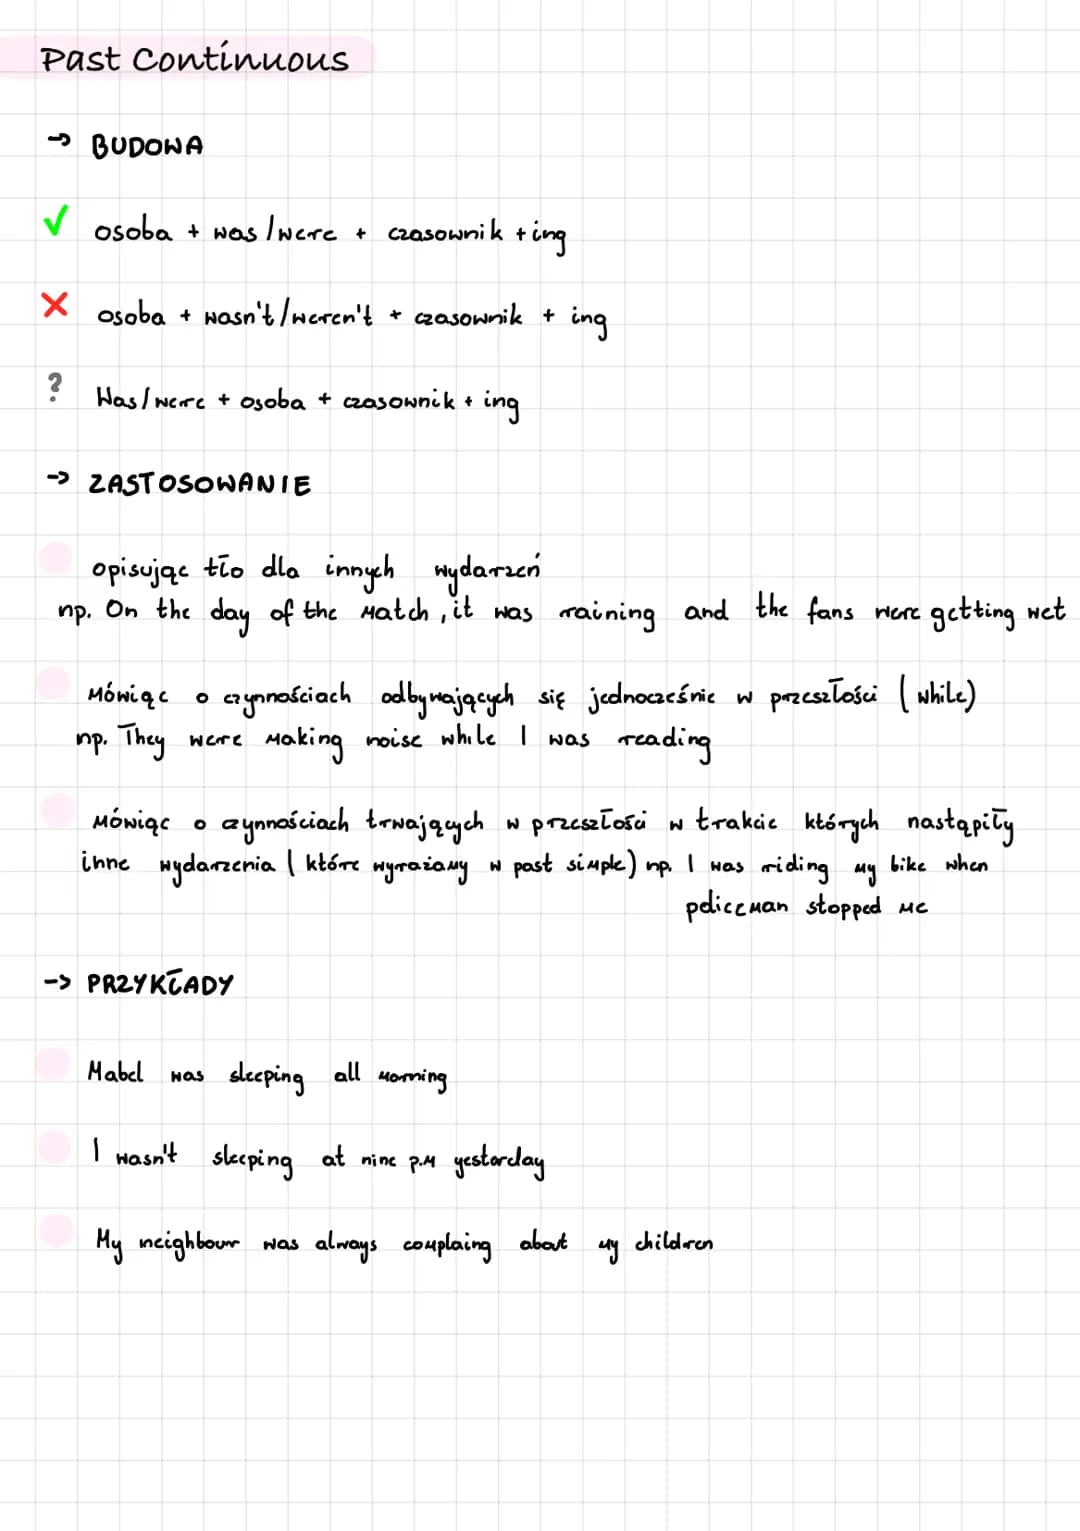 Past Continuous
→ BUDOWA
✓ osoba + was/were + czasownik + ing
✗ osoba + wasn't/weren't + czasownik + ing
? Was/were + osoba + czasownik + ing
-> ZASTOSOWANIE
opisując tło dla innych wydarzeń
np. On the day of the match, it was raining and the fans were getting wet
mówiąc o czynnościach odbywających się jednocześnie w przeszłości (while)
np. They were making noise while I was reading
mówiąc o czynnościach trwających w przeszłości w trakcie których nastąpiły
inne wydarzenia (które wyrażamy w past simple) np. I was riding my bike when
policeman stopped me
-> PRZYKŁADY
Mabel was sleeping all morning
I wasn't sleeping at nine p.m yesterday
My neighbour was always complaing about my children